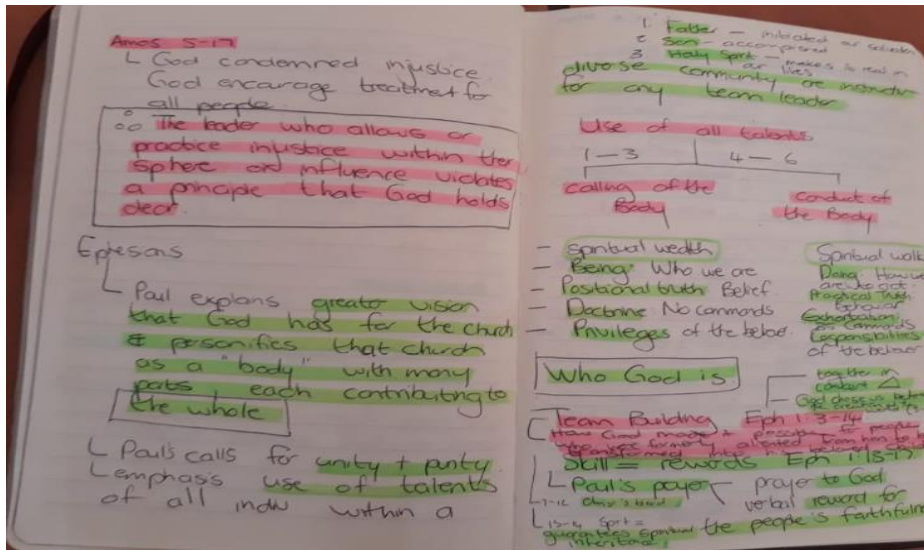 Amos 5-17
God condemned injustice.
God encourage treatment for
all people.
∴ The leader who allows or
practice injustice within ther
sphere on influence violates
a principle that God holds
dear.
Ephesans
Paul explains greater vision
that God has for the church
& personifies that church
as a "body" with many
parts, each contributing to
the whole
Paul's calls for unity + purity
emphasis use of talents
of all indiv within a
1. Father — initiated our salvation
2 Son - accomplished
3 Holy Spirit — makes it real in
our lives
diverse community are instructive
for any team leader
Use of all talents
1 — 3 4 — 6
calling of the
Body
conduct of
the Body
- Spiritual wealth
- Being Who we are
- Positional truth Belief
- Doctrine No commands
- Privileges of the believer
Spiritual walk
Doing How we
are to act
Practical Truth
behavior
Exhortation
Commands
Responsibilities
of the believer
Who God is
together in
God chose us before
Team Building Eph 1:3-14
How God made possible people
who were formerly alienated from him to be
transformed into his
Skill = rewards Eph 1:15-17
Paul's prayer prayer to God
verbal reward for
the people's faithfuln
7-12
guarantees spiritual
inheritance